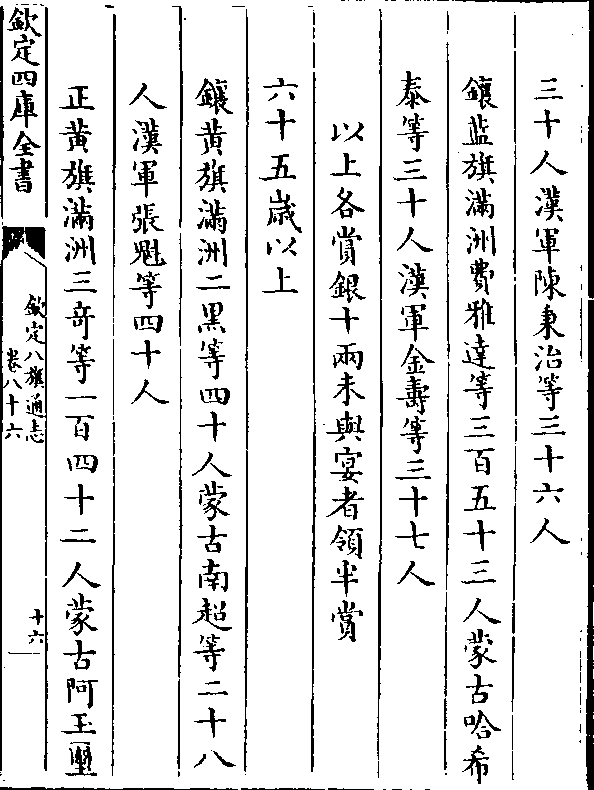 三十人漢軍陳秉治等三十六人
鑲藍旗滿洲費雅達等三百五十三人蒙古哈希
泰等三十人漢軍金壽等三十七人
以上各賞銀十兩未與宴者領半賞
六十五歲以上
鑲黃旗滿洲二黑等四十人蒙古南超等二十八
人漢軍張魁等四十人
正黃旗滿洲三竒等一百四十二人蒙古阿玉璽
欽定四庫全書
欽定八旗通志
卷八十六
十六